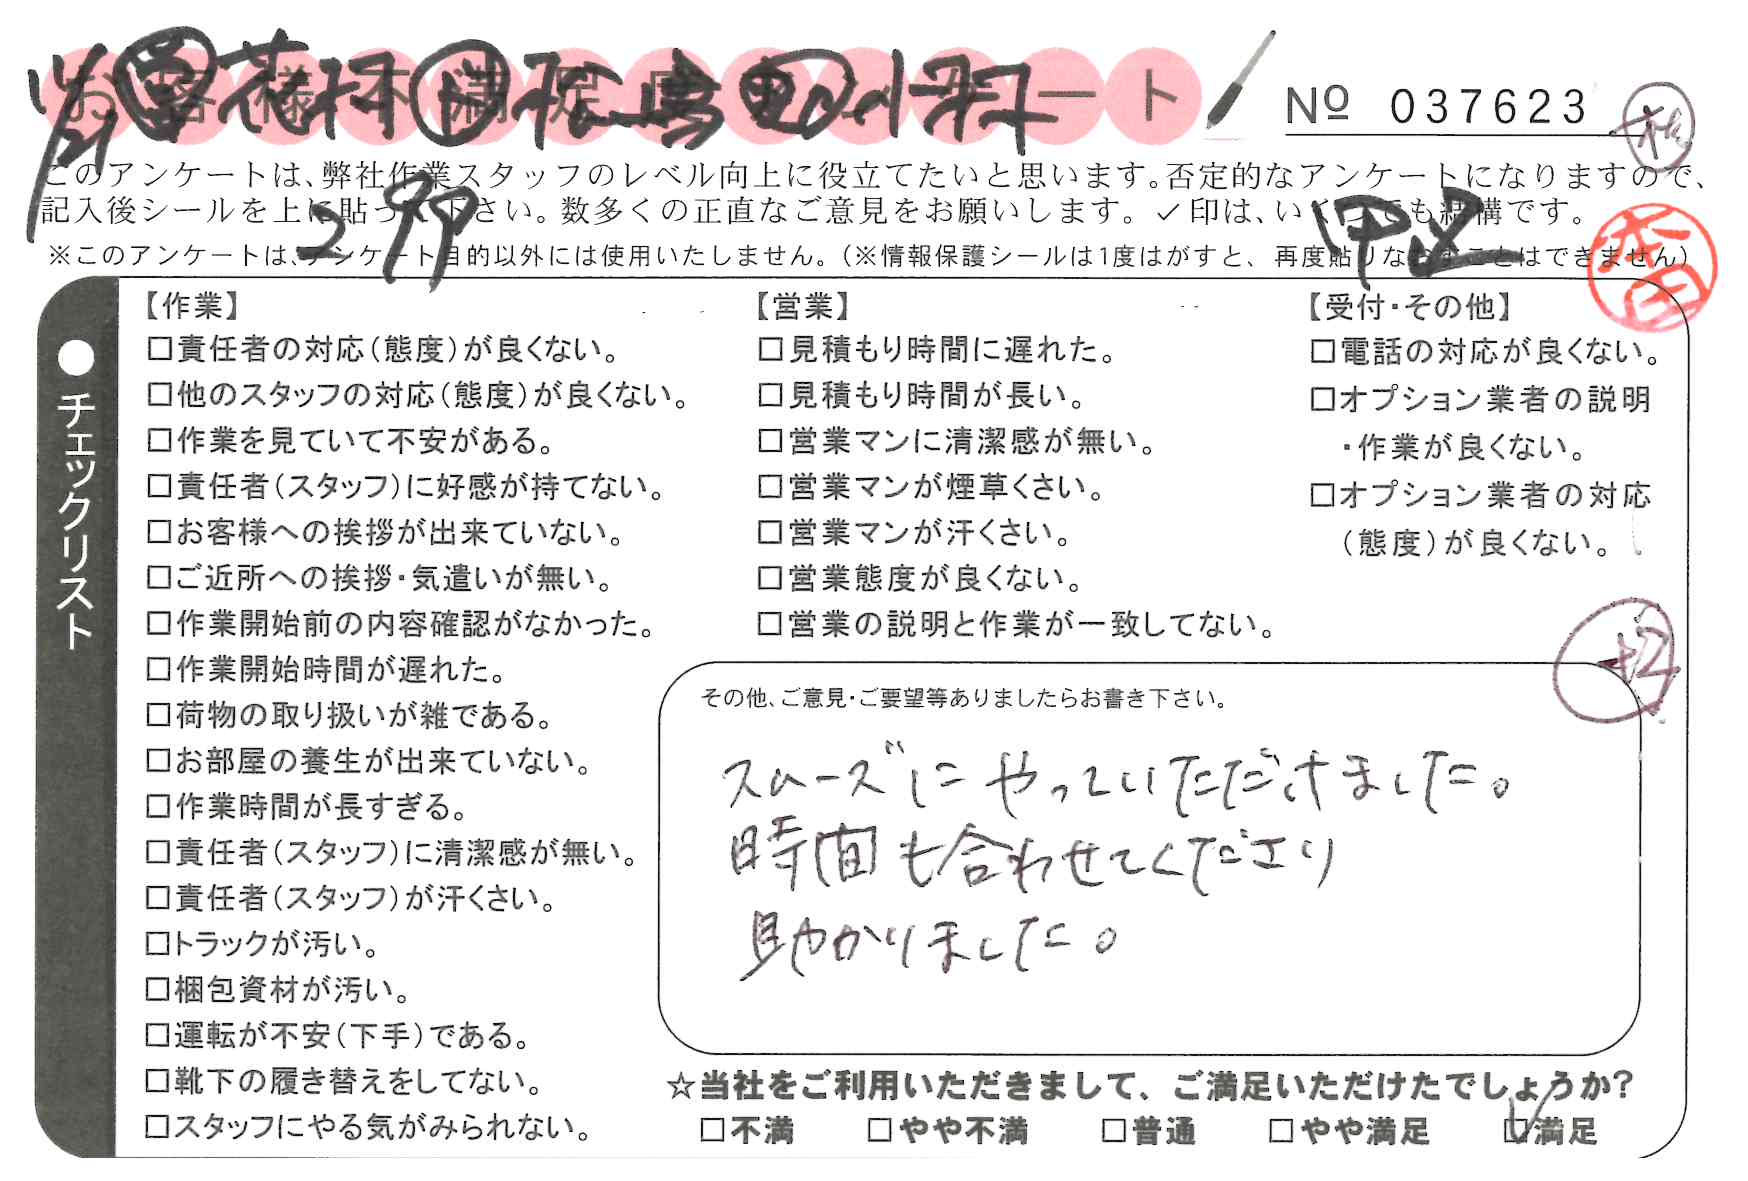 お客様不満足度アンケート
花村 松島 小林
№ 037623
このアンケートは、弊社作業スタッフのレベル向上に役立てたいと思います。否定的なアンケートになりますので、
記入後シールを上に貼って下さい。数多くの正直なご意見をお願いします。✓印は、いくつでも結構です。
※このアンケートは、アンケート目的以外には使用いたしません。（※情報保護シールは1度はがすと、再度貼りなおすことはできません）
●チェックリスト
【作業】
□責任者の対応（態度）が良くない。
□他のスタッフの対応（態度）が良くない。
□作業を見ていて不安がある。
□責任者（スタッフ）に好感が持てない。
□お客様への挨拶が出来ていない。
□ご近所への挨拶・気遣いが無い。
□作業開始前の内容確認がなかった。
□作業開始時間が遅れた。
□荷物の取り扱いが雑である。
□お部屋の養生が出来ていない。
□作業時間が長すぎる。
□責任者（スタッフ）に清潔感が無い。
□責任者（スタッフ）が汗くさい。
□トラックが汚い。
□梱包資材が汚い。
□運転が不安（下手）である。
□靴下の履き替えをしてない。
□スタッフにやる気がみられない。
【営業】
□見積もり時間に遅れた。
□見積もり時間が長い。
□営業マンに清潔感が無い。
□営業マンが煙草くさい。
□営業マンが汗くさい。
□営業態度が良くない。
□営業の説明と作業が一致してない。
【受付・その他】
□電話の対応が良くない。
□オプション業者の説明
・作業が良くない。
□オプション業者の対応
（態度）が良くない。
その他、ご意見・ご要望等ありましたらお書き下さい。
スムーズにやっていただけました。
時間も合わせてくださり
助かりました。
☆当社をご利用いただきまして、ご満足いただけたでしょうか？
□不満 □やや不満 □普通 □やや満足 ☑満足